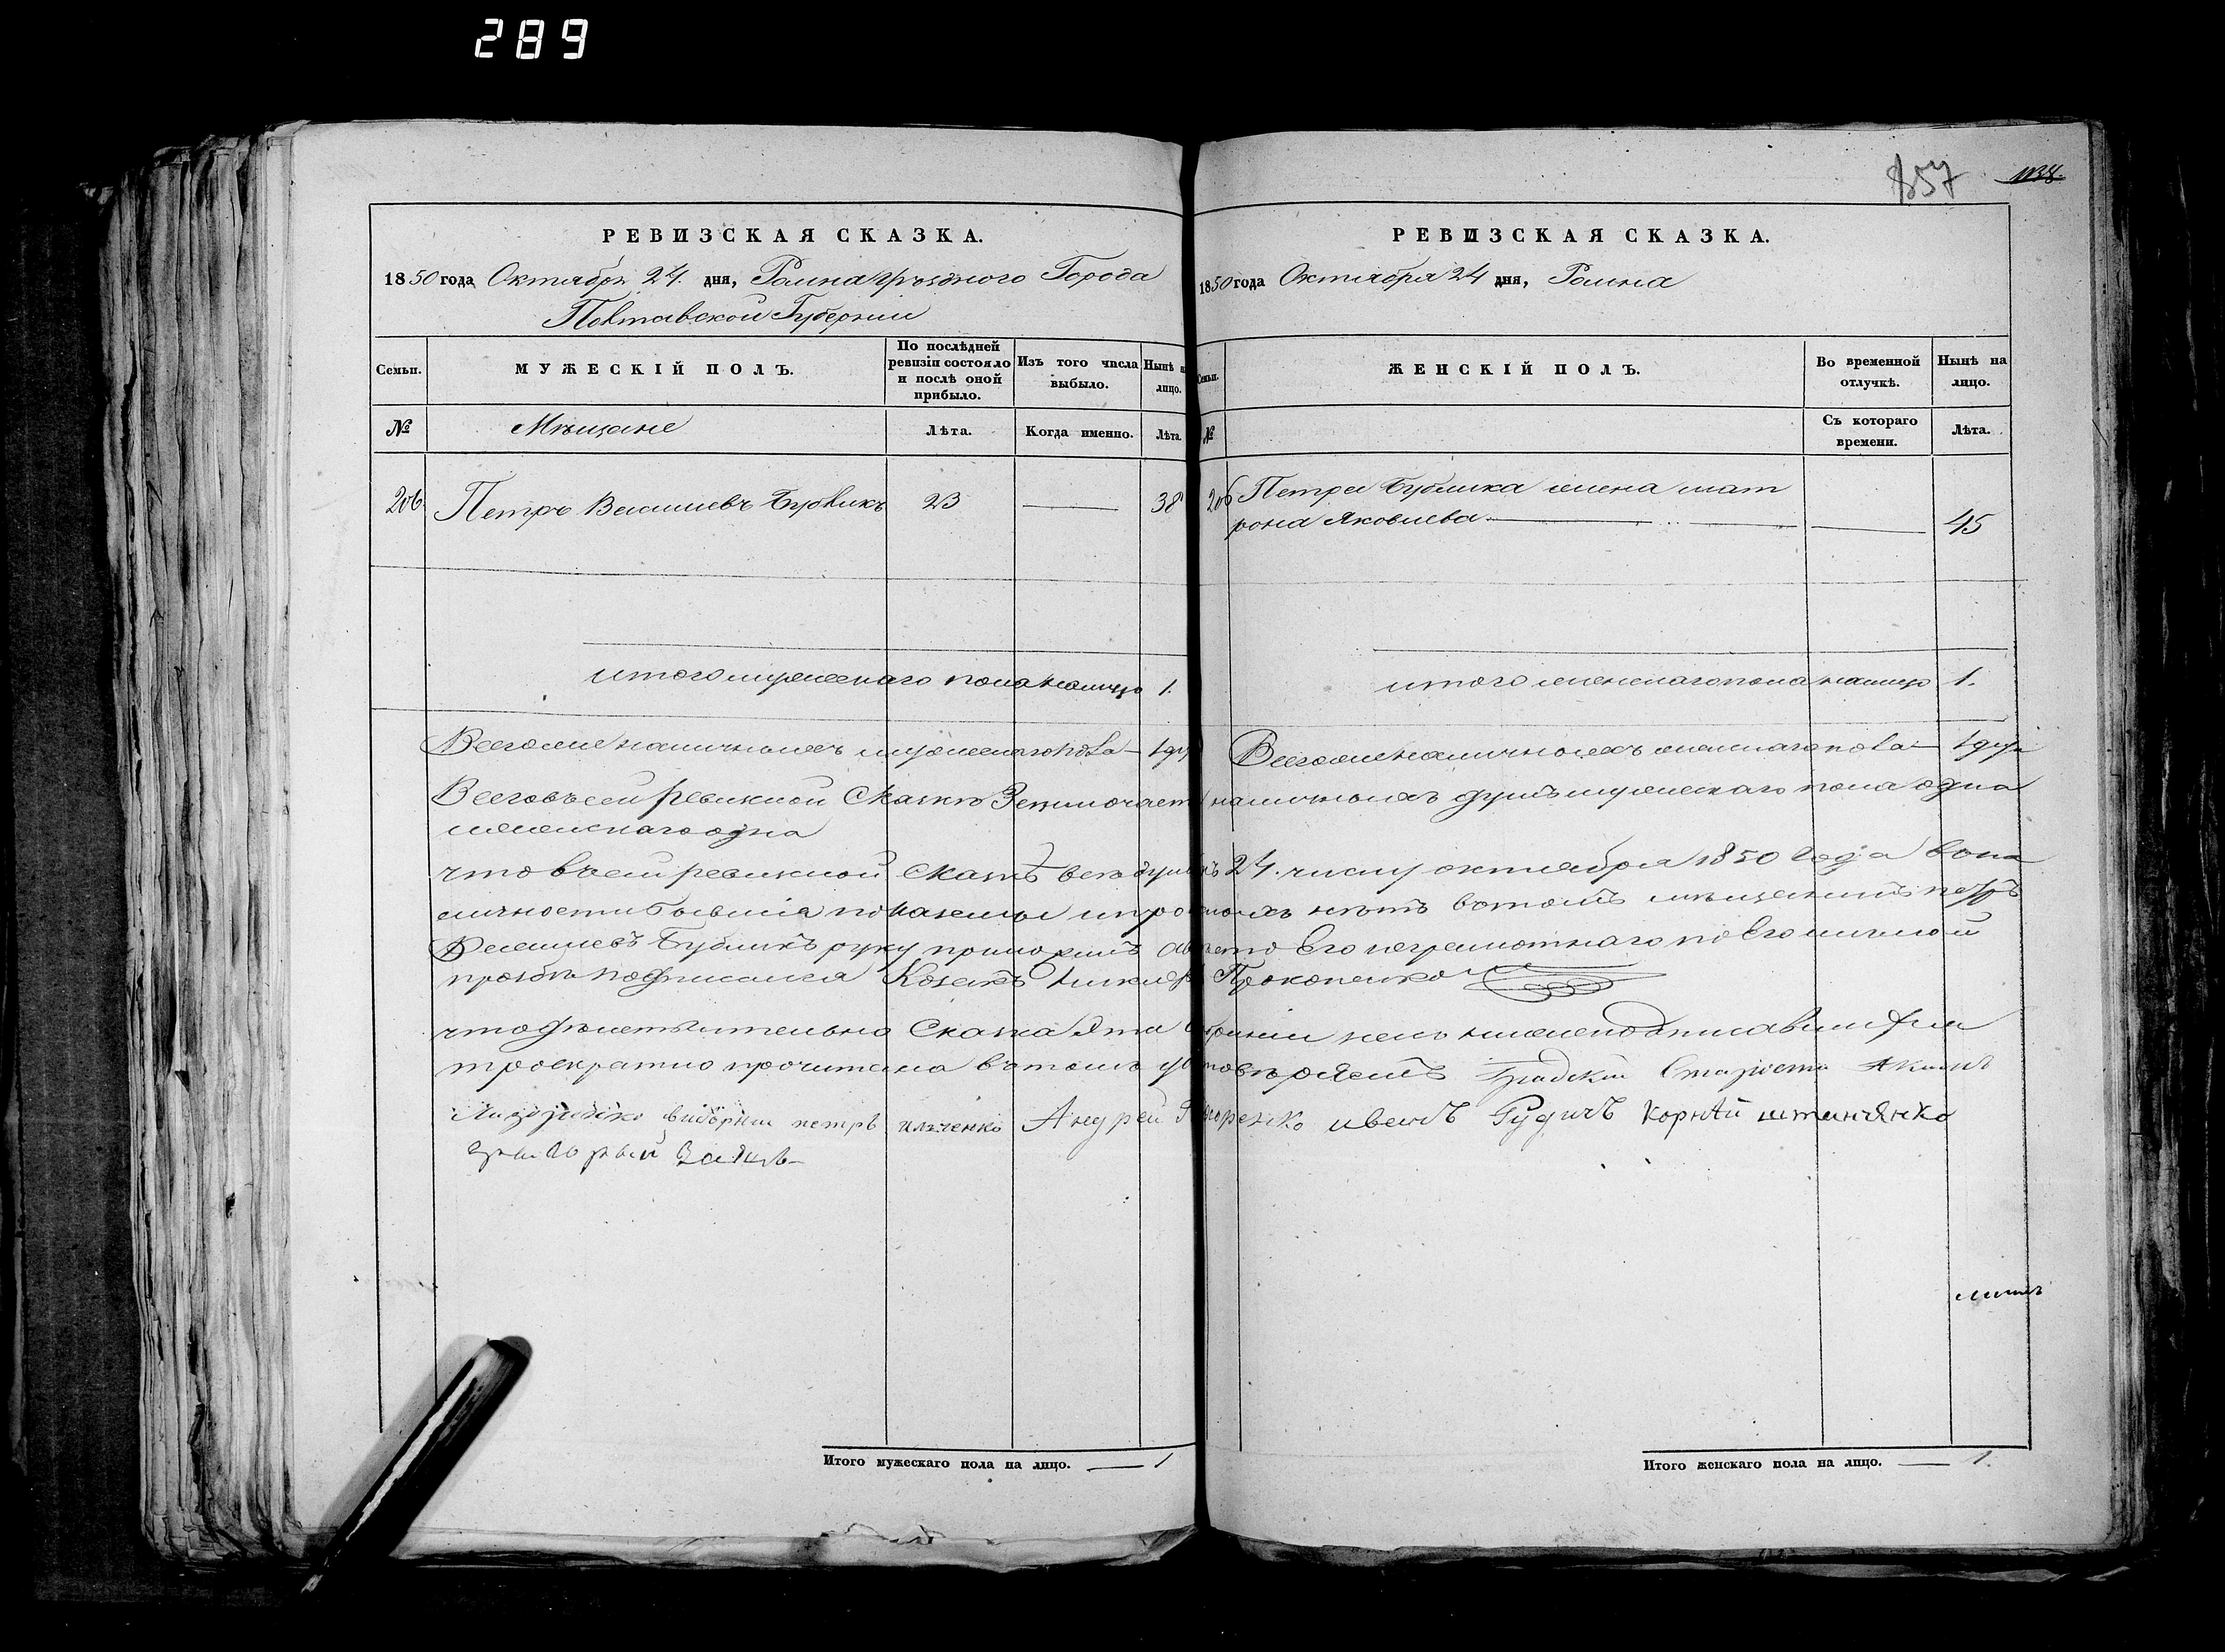 289
857
1138.
РЕВИЗСКАЯ СКАЗКА.
1850 года Октября 24. дня, Ромна уѣзднаго Города
Полтавской Губерніи
Семьи.
МУЖЕСКІЙ ПОЛЪ.
По послѣдней ревизіи состояло и послѣ оной прибыло.
Изъ того числа выбыло.
Нынѣ на лицо.
№
Мѣщане
Лѣта.
Когда именно.
Лѣта.
206. Петръ Васильевъ Бубликъ 23 — 38
итого мужескаго пола налицо 1.
РЕВИЗСКАЯ СКАЗКА.
1850 года Октября 24 дня, Ромна
Семьи.
ЖЕНСКІЙ ПОЛЪ.
Во временной отлучкѣ.
Нынѣ на лицо.
№
Съ котораго времени.
Лѣта.
206 Петра Бублика жена мат
рона Яковлева — — 45
итого женскаго пола налицо 1.
Всегоже наличныхъ мужескаго пола — 1 ду
Всегоже наличныхъ женскаго пола — 1 душа
Всего въ сей ревизкой Сказкѣ Заключает наличныхъ душъ мужескаго пола одна
женскаго одна
что въ сей ревизкой Сказкѣ всѣ души къ 24. числу октября 1850 года вона
личности бывшіе показаны и прописныхъ нѣтъ вътомъ мѣщанинъ петръ
Васильевъ Бубликъ руку приложилъ а вмѣсто Его неграмотнаго по Его личной
прозбѣ подписался Козакъ Прокопенко
что дѣйствительно Сказка Эта нижеподписавшимся
троекратно прочитана вътомъ удостовѣряемъ Градскій Староста Акимъ
виборніи петръ илченко Андрей иванъ Рудичъ Корнѣй
Итого мужескаго пола на лицо. — 1
Итого женскаго пола на лицо. — 1.